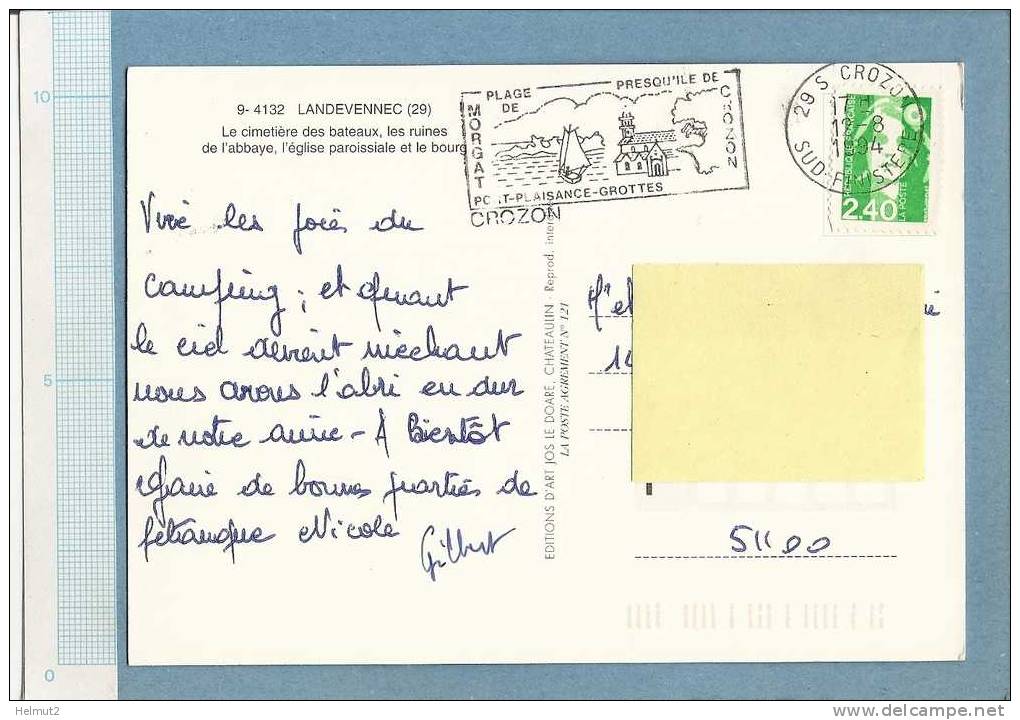 9- 4132 LANDEVENNEC (29)
Le cimetière des bateaux, les ruines
de l'abbaye, l'église paroissiale et le bourg
PLAGE DE MORGAT
PRESQU'ILE DE CROZON
PORT-PLAISANCE-GROTTES
CROZON
29 S CROZON
17 H
13-8
1994
SUD-FINISTERE
REPUBLIQUE FRANÇAISE
2,40
LA POSTE
Vive les joies du
camping ; et quant
le ciel devient méchant
nous avons l'abri en dur
de notre amie - A Bientôt
faire de bonnes parties de
pétanque Nicole
Gilbert
EDITIONS D'ART JOS LE DOARE, CHATEAULIN - Reprod. inter
LA POSTE AGREMENT N° 121
M' et
14
51100
10
5
0
Helmut2
delcampe.net